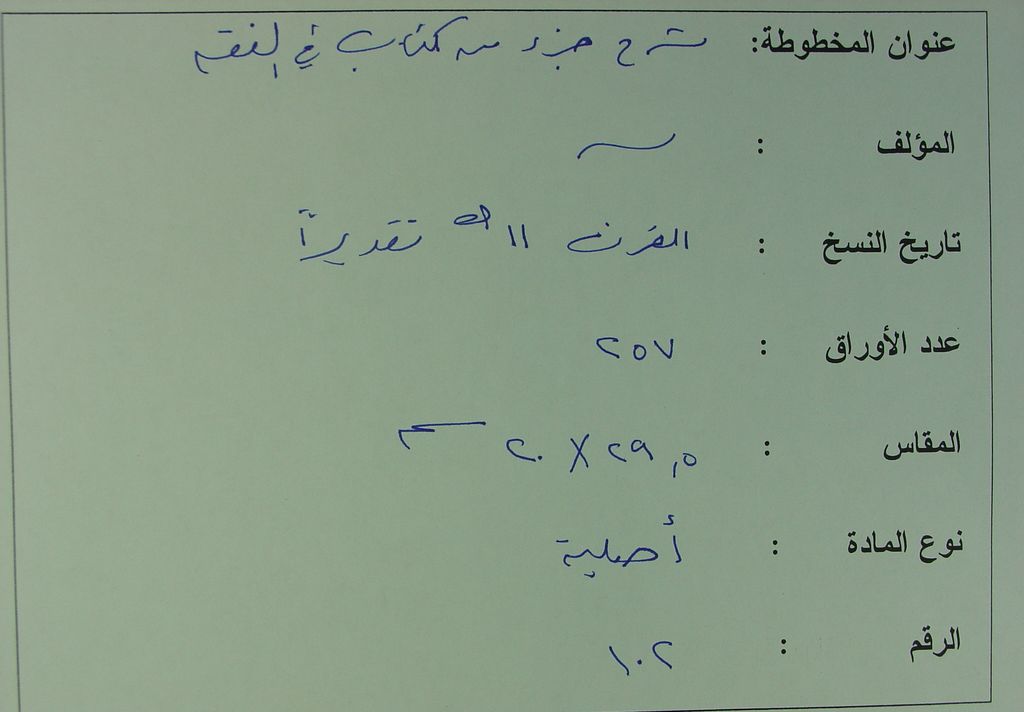 عنوان المخطوطة: شرح جزء من كتاب في الفقه
المؤلف : ــ
تاريخ النسخ : القرن ١١ هـ تقديراً
عدد الأوراق : ٢٥٧
المقاس : ٢٩,٥ X ٢٠ سم
نوع المادة : أصلية
الرقم : ١٠٢